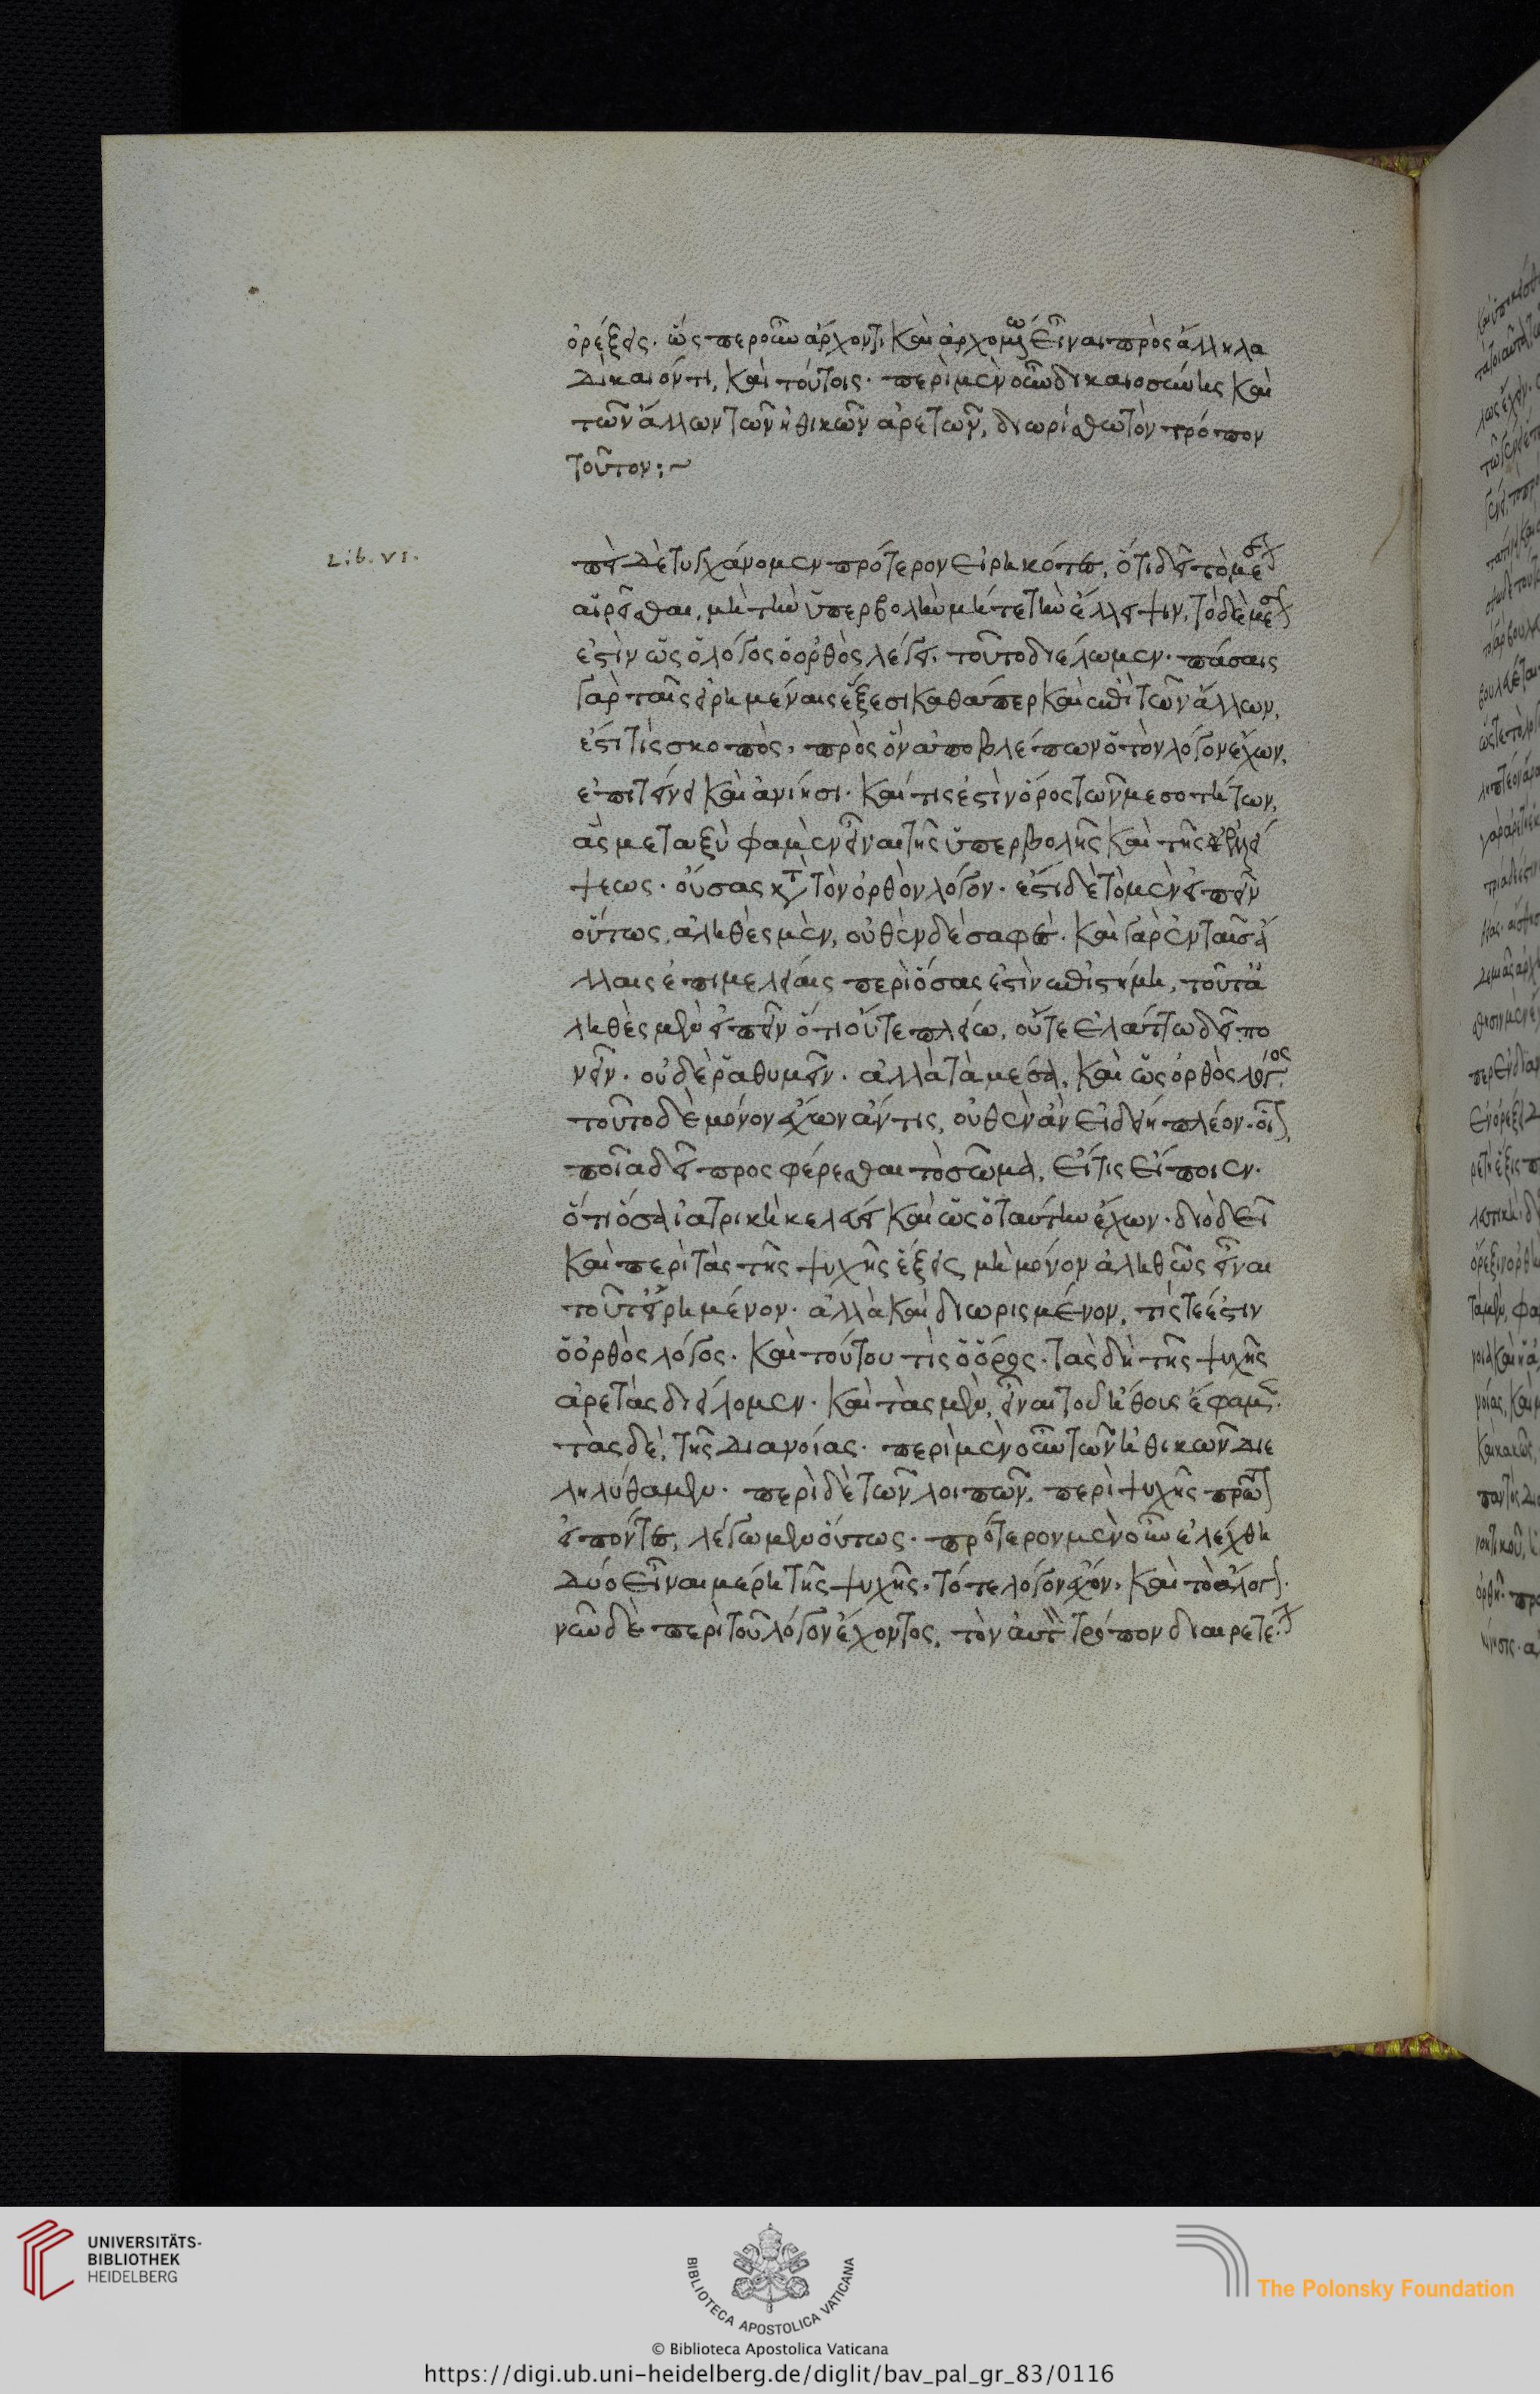 ὀρέξεις. ὥσπερ οὖν ἄρχοντι καὶ ἀρχομένω εἶναι πρὸς ἄλληλα
δίκαιόν τι, καὶ τούτοις. περὶ μὲν οὖν δικαιοσύνης καὶ
τῶν ἄλλων τῶν ἠθικῶν ἀρετῶν, διωρίσθω τὸν τρόπον
τοῦτον:~
Lib. VI.
πεὶ δὲ τυγχάνομεν πρότερον εἰρηκότες, ὅτι δεῖ τὸ μέσον
αἱρεῖσθαι, μὴ τὴν ὑπερβολὴν μήτε τὴν ἔλλειψιν, τὸ δὲ μέσον
ἐστὶν ὡς ὁ λόγος ὁ ὀρθὸς λέγει, τοῦτο διέλωμεν. πάσαις
γὰρ ταῖς εἰρημέναις ἕξεσι καθάπερ καὶ ἐπὶ τῶν ἄλλων,
ἐστί τις σκοπὸς, πρὸς ὃν ἀποβλέπων ὁ τὸν λόγον ἔχων,
ἐπιτείνει καὶ ἀνίησι. καί τις ἐστὶν ὅρος τῶν μεσοτήτων,
ἃς μεταξύ φαμὲν εἶναι τῆς ὑπερβολῆς καὶ τῆς ἐλλεί
ψεως. οὔσας κατὰ τὸν ὀρθὸν λόγον. ἔστι δὲ τὸ μὲν εἰπεῖν
οὕτως, ἀληθὲς μὲν, οὐθὲν δὲ σαφές. καὶ γὰρ ἐν ταῖς ἄ
λλαις ἐπιμελείαις περὶ ὅσας ἐστὶν ἐπιστήμη, τοῦτ' ἀ
ληθὲς μὲν εἰπεῖν ὅτι οὔτε πλείω, οὔτε ἐλάττω δεῖ πο
νεῖν. οὐδὲ ῥαθυμεῖν. ἀλλὰ τὰ μέσα, καὶ ὡς ὀρθὸς λόγος.
τοῦτο δὲ μόνον ἔχων ἄν τις, οὐθὲν ἂν εἰδείη πλέον. οἷον
ποῖα δεῖ προσφέρεσθαι τὸ σῶμα, εἴ τις εἴποιεν.
ὅτι ὅσα ἰατρικὴ κελεύει καὶ ὡς ὁ ταύτην ἔχων. διὸ δεῖ
καὶ περὶ τὰς τῆς ψυχῆς ἕξεις μὴ μόνον ἀληθῶς εἶναι
τοῦτ' εἰρημένον. ἀλλὰ καὶ διωρισμένον, τίς τε ἐστιν
ὁ ὀρθὸς λόγος. καὶ τούτου τίς ὁ ὅρος. τὰς δὴ τῆς ψυχῆς
ἀρετὰς διειλόμεν. καὶ τὰς μὲν, εἶναι τοῦ ἤθους ἔφαμεν.
τὰς δὲ, τῆς διανοίας. περὶ μὲν οὖν τῶν ἠθικῶν διε
ληλύθαμεν. περὶ δὲ τῶν λοιπῶν, περὶ ψυχῆς πρῶτον
εἰπόντες, λέγωμεν οὕτως. πρότερον μὲν οὖν ἐλέχθη
δύο εἶναι μέρη τῆς ψυχῆς. τό τε λόγον ἔχον. καὶ τὸ ἄλογον.
νῦν δὲ περὶ τοῦ λόγον ἔχοντος, τὸν αὐτὸν τρόπον διαιρετέον
UNIVERSITÄTS-
BIBLIOTHEK
HEIDELBERG
BIBLIOTECA APOSTOLICA VATICANA
The Polonsky Foundation
© Biblioteca Apostolica Vaticana
https://digi.ub.uni-heidelberg.de/diglit/bav_pal_gr_83/0116